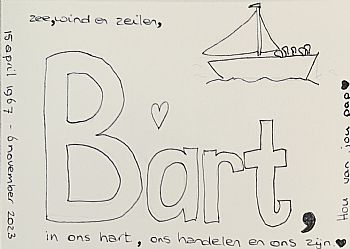 zee, wind en zeilen,
Bart,
in ons hart, ons handelen en ons zijn
15 april 1967 - 6 november 2023
Hou van jou pap